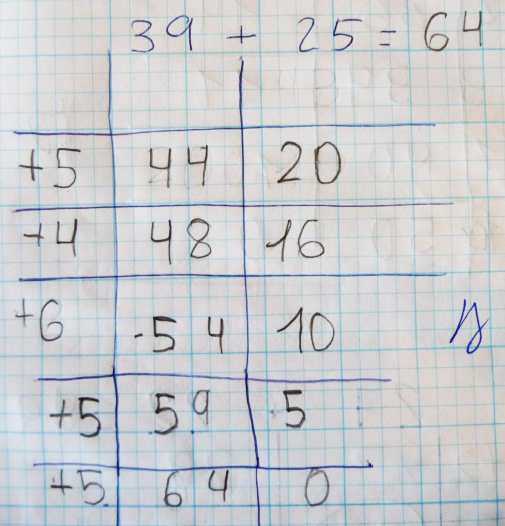 39 + 25 = 64
+5 44 20
+4 48 16
+6 54 10
+5 59 5
+5 64 0